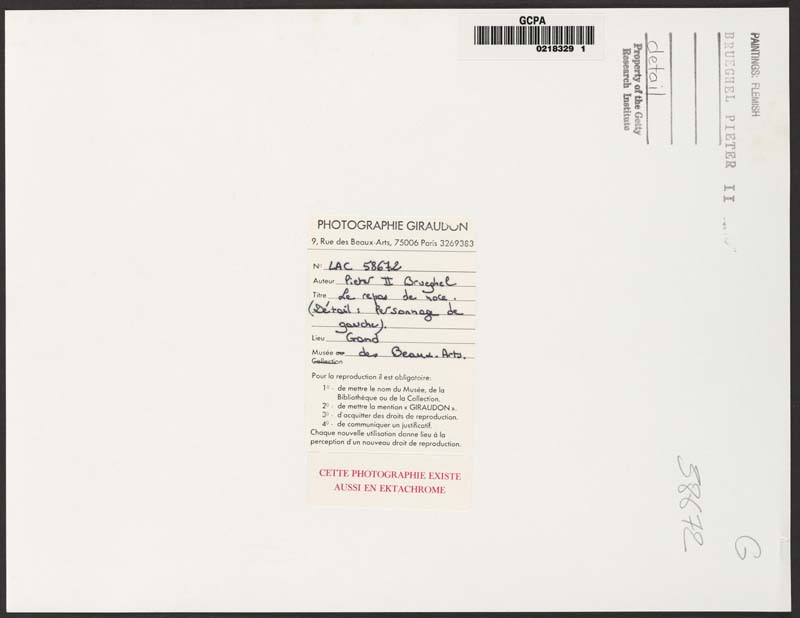 GCPA
0218329 1
PAINTINGS: FLEMISH
BRUEGHEL PIETER II
detail
Property of the Getty
Research Institute
PHOTOGRAPHIE GIRAUDON
9, Rue des Beaux-Arts, 75006 Paris 3269383
N° LAC 58672
Auteur Pieter II Brueghel
Titre Le repas de noce.
(Détail: Personnage de
gauche).
Lieu Gand
Musée des Beaux-Arts.
Collection
Pour la reproduction il est obligatoire:
1° - de mettre le nom du Musée, de la
Bibliothèque ou de la Collection.
2° - de mettre la mention « GIRAUDON ».
3° - d'acquitter des droits de reproduction.
4° - de communiquer un justificatif.
Chaque nouvelle utilisation donne lieu à la
perception d'un nouveau droit de reproduction.
CETTE PHOTOGRAPHIE EXISTE
AUSSI EN EKTACHROME
58672
G